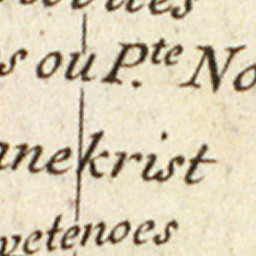 s ou P.te No
anekrist
vetenoes